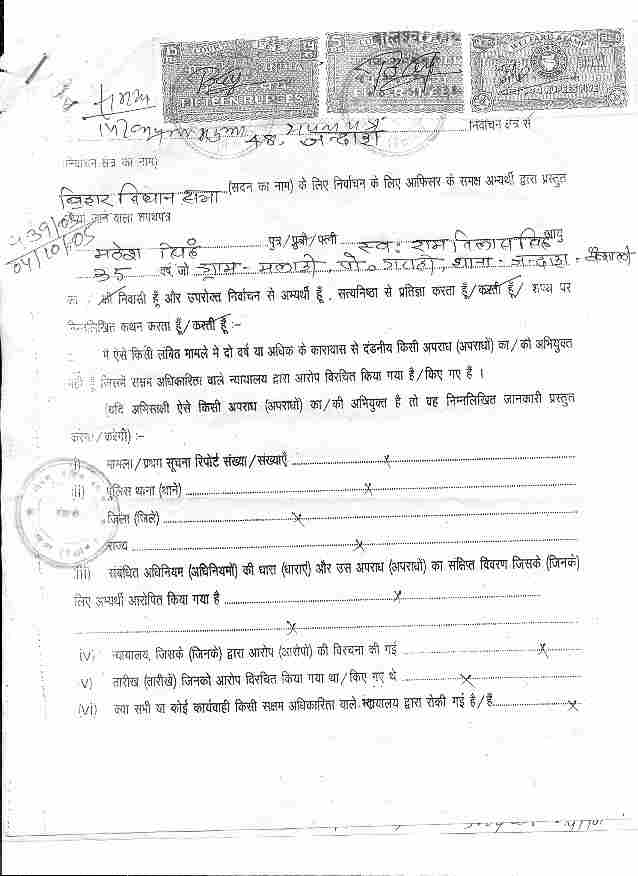 FIFTEEN RUPEES
WELFARE STAMP
शपथ पत्र
48, जन्दाहा निर्वाचन क्षेत्र से
(निर्वाचन क्षेत्र का नाम)
बिहार विधान सभा (सदन का नाम) के लिए निर्वाचन के लिए आफिसर के समक्ष अभ्यर्थी द्वारा प्रस्तुत
किया जाने वाला शपथपत्र
04/10/05
महेश सिंह पुत्र/पुत्री/पत्नी स्व: राम विलास सिंह आयु
35 वर्ष, जो ग्राम- थाना- जन्दाहा- वैशाली
का/की निवासी हूँ और उपरोक्त निर्वाचन से अभ्यर्थी हूँ, सत्यनिष्ठा से प्रतिज्ञा करता हूँ/करती हूँ/ शपथ पर
निम्नलिखित कथन करता हूँ/करती हूँ :-
मैं ऐसे किसी लंबित मामले में दो वर्ष या अधिक के कारावास से दंडनीय किसी अपराध (अपराधों) का/की अभियुक्त
नहीं हूँ जिसमें सक्षम अधिकारिता वाले न्यायालय द्वारा आरोप विरचित किया गया है/किए गए हैं ।
(यदि अभिसाक्षी ऐसे किसी अपराध (अपराधों) का/की अभियुक्त है तो वह निम्नलिखित जानकारी प्रस्तुत
करेगा/करेगी) :-
i) मामला/प्रथम सूचना रिपोर्ट संख्या/संख्याएँ ........ x ........
ii) पुलिस थाना (थाने) ........ x ........
जिला (जिले) ........ x ........
राज्य ........ x ........
iii) संबंधित अधिनियम (अधिनियमों) की धारा (धाराएं) और उस अपराध (अपराधों) का संक्षिप्त विवरण जिसके (जिनके)
लिए अभ्यर्थी आरोपित किया गया है ........ x ........
........ x ........
iv) न्यायालय, जिसके (जिनके) द्वारा आरोप (आरोपों) की विरचना की गई ........ x ........
v) तारीख (तारीखें) जिनको आरोप विरचित किया गया था/किए गए थे ........ x ........
(vi) क्या सभी या कोई कार्यवाही किसी सक्षम अधिकारिता वाले न्यायालय द्वारा रोकी गई है/हैं ........ x